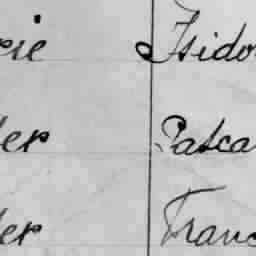 rie Isido
der Pasca
der Franc